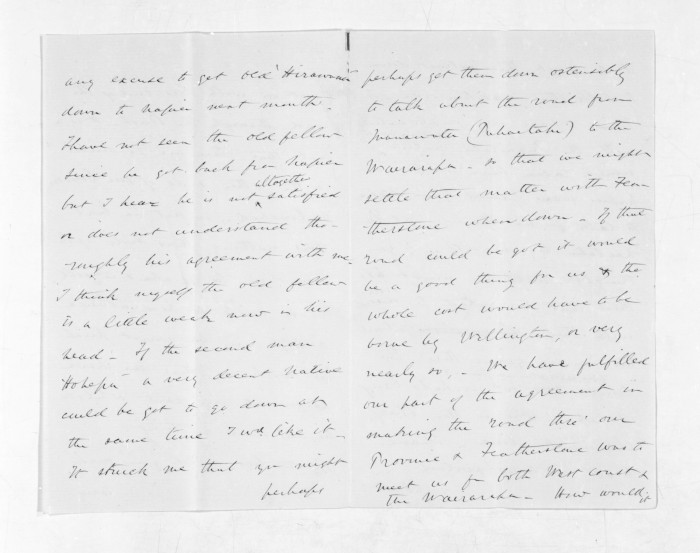 any excuse to get old "Hirawanu"
down to Napier next month.
I have not seen the old fellow
since he got back from Napier
but I hear he is not altogether satisfied
or does not understand tho-
-roughly his agreement with me.
I think myself the old fellow
is a little weak now in his
head - If the second man
"Hohepa" a very decent native
could be got to go down at
the same time I wd like it -
It struck me that you might
perhaps
perhaps get them down ostensibly
to talk about the road from
Manawatu (Puhaitahi) to the
Wairarapa - so that we might
settle that matter with Fea-
-therstone when down - If that
road could be got it would
be a good thing for us & the
whole cost would have to be
borne by Wellington, or very
nearly so, - We have fulfilled
our part of the agreement in
making the road thro' our
Province & Featherstone was to
meet us for both West coast &
the Wairarapa - How would it